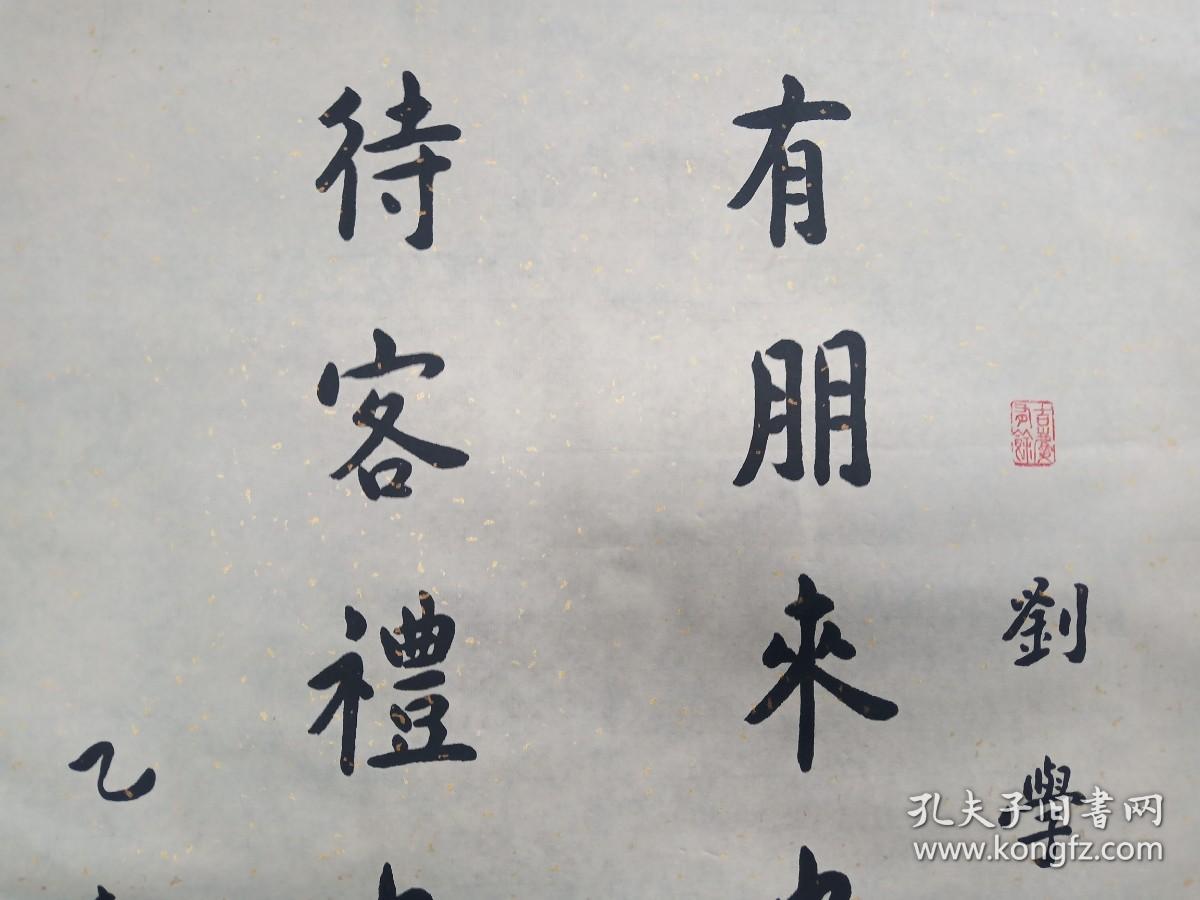 劉學
有朋來
待客禮
乙
孔夫子旧书网
www.kongfz.com